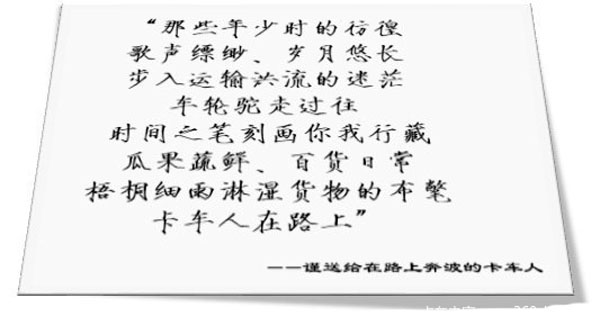 “那些年少时的彷徨
歌声缥缈、岁月悠长
步入运输洪流的迷茫
车轮驼走过往
时间之笔刻画你我行藏
瓜果蔬鲜、百货日常
梧桐细雨淋湿货物的布氅
卡车人在路上”
——谨送给在路上奔波的卡车人